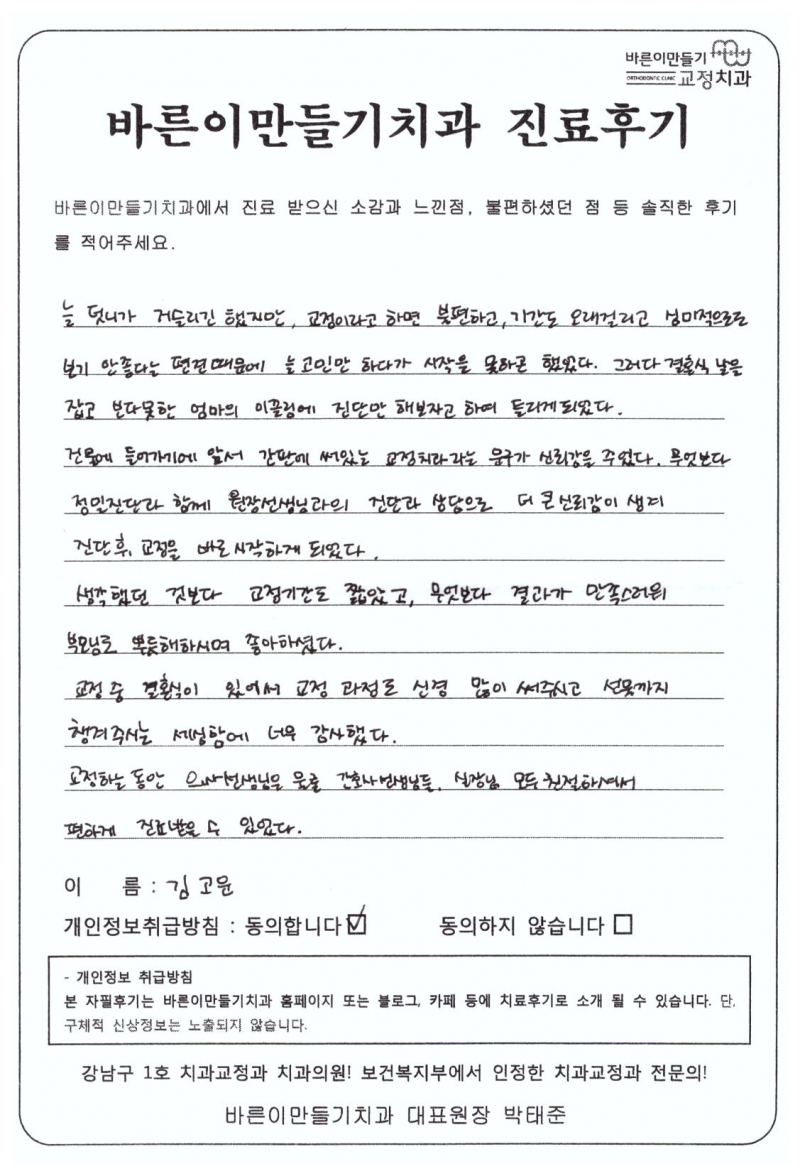 바른이만들기
ORTHODONTIC CLINIC 교정치과
바른이만들기치과 진료후기
바른이만들기치과에서 진료 받으신 소감과 느낀점, 불편하셨던 점 등 솔직한 후기
를 적어주세요.
늘 덧니가 거슬리긴 했지만, 교정이라고 하면 불편하고, 기간도 오래걸리고 심미적으로도
보기 안좋다는 편견때문에 늘 고민만 하다가 시작을 못하곤 했었다. 그러다 결혼식 날을
잡고 보다못한 엄마의 이끌림에 진단만 해보자고 하여 들리게되었다.
건물에 들어가기에 앞서 간판에 써있는 교정치과라는 문구가 신뢰감을 주었다. 무엇보다
정밀진단과 함께 원장선생님과의 진단과 상담으로 더 큰 신뢰감이 생겨
진단 후, 교정을 바로 시작하게 되었다.
생각했던 것보다 교정기간도 짧았고, 무엇보다 결과가 만족스러워
부모님도 뿌듯해하시며 좋아하셨다.
교정 중 결혼식이 있어서 교정 과정도 신경 많이 써주시고 선물까지
챙겨주시는 세심함에 너무 감사했다.
교정하는 동안 의사선생님은 물론 간호사선생님들, 실장님 모두 친절하셔서
편하게 진료받을 수 있었다.
이 름 : 김고운
개인정보취급방침 : 동의합니다 ☑ 동의하지 않습니다 □
- 개인정보 취급방침
본 자필후기는 바른이만들기치과 홈페이지 또는 블로그, 카페 등에 치료후기로 소개 될 수 있습니다. 단,
구체적 신상정보는 노출되지 않습니다.
강남구 1호 치과교정과 치과의원! 보건복지부에서 인정한 치과교정과 전문의!
바른이만들기치과 대표원장 박태준